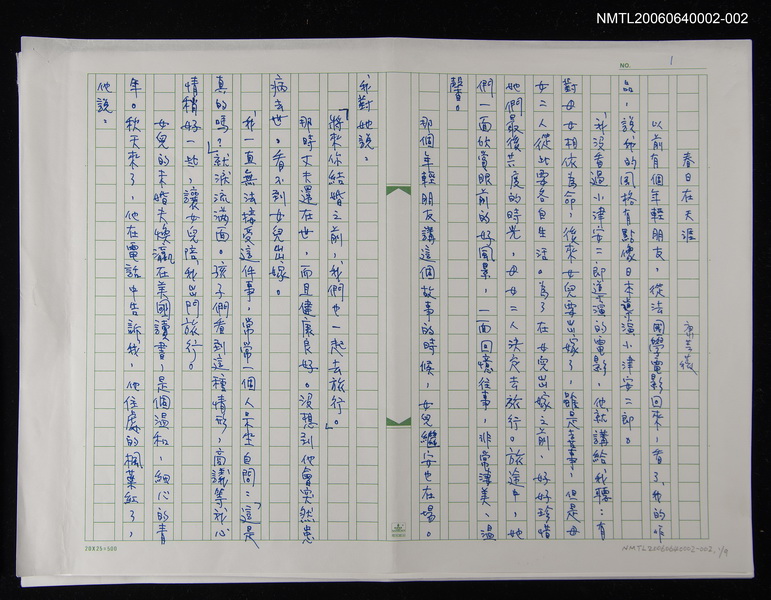 NMTL20060640002-002
NO. 1
春日在天涯
以前有個年輕朋友,從法國學電影回來,看了我的作
品,說我的風格有點像日本導演小津安二郎。
我沒看過小津安二郎導演的電影,他就講給我聽:有
對母女相依為命,後來女兒要出嫁了,雖是喜事,但是母
女二人從此要各自生活。為了在女兒出嫁之前,好好珍惜
她們最後共度的時光,母女二人決定去旅行。旅途中,她
們一面欣賞眼前的好風景,一面回憶往事,非常淒美、溫
馨。
那個年輕朋友講這個故事的時候,女兒繼安也在場。
我對她說:
「將來你結婚之前,我們也一起去旅行。」
那時丈夫還在世,而且健康良好。沒想到他會突然患
病去世,看不到女兒出嫁。
我一直無法接受這件事,常常一個人呆坐自問:「這是
真的嗎?」就淚流滿面。孩子們看到這種情形,商議等我心
情稍好一些,讓女兒陪我出門旅行。
女兒的未婚夫煥瀛在美國讀書,是個溫和、細心的青
年。秋天來了,他在電話中告訴我,他住處的楓葉紅了,
他說:
28X25=500
NMTL20060640002-002, 1/9